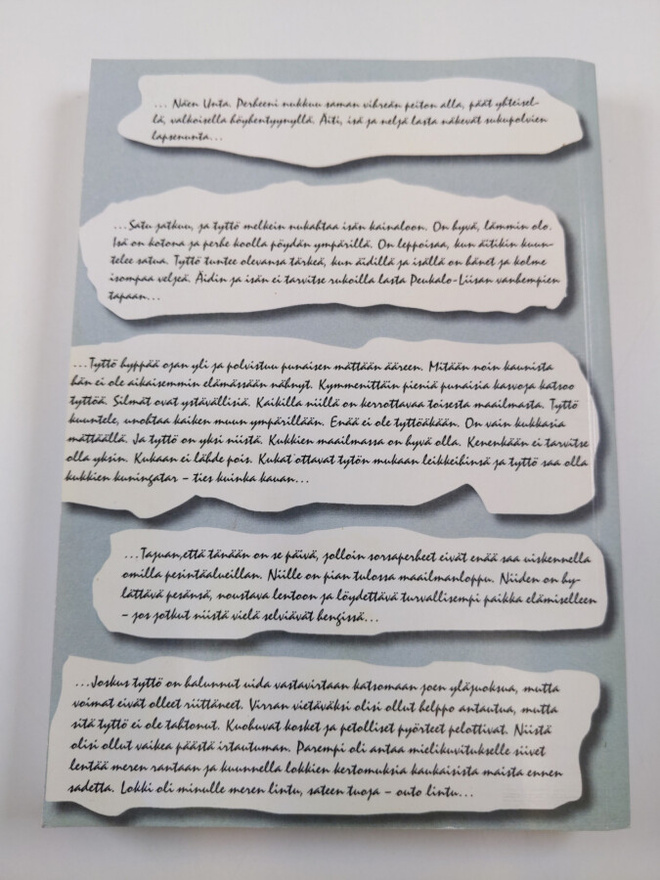 ... Näen Unta. Perheeni nukkuu saman vihreän peiton alla, päät yhteisel-
lä, valkoisella höyhentyynyllä. Äiti, isä ja neljä lasta näkevät sukupolvien
lapsenunta...
...Satu jatkuu, ja tyttö melkein nukahtaa isän kainaloon. On hyvä, lämmin olo.
Isä on kotona ja perhe koolla pöydän ympärillä. On leppoisaa, kun äitikin kuun-
telee satua. Tyttö tuntee olevansa tärkeä, kun äidillä ja isällä on hänet ja kolme
isompaa veljeä. Äidin ja isän ei tarvitse rukoilla lasta Peukalo-Liisan vanhempien
tapaan...
...Tyttö hyppää ojan yli ja polvistuu punaisen mättään ääreen. Mitään noin kaunista
hän ei ole aikaisemmin elämässään nähnyt. Kymmenittäin pieniä punaisia kasvoja katsoo
tyttöä. Silmät ovat ystävällisiä. Kaikilla niillä on kerrottavaa toisesta maailmasta. Tyttö
kuuntelee, unohtaa kaiken muun ympärillään. Enää ei ole tyttöäkään. On vain kukkasia
mättäällä. Ja tyttö on yksi niistä. Kukkien maailmassa on hyvä olla. Kenenkään ei tarvitse
olla yksin. Kukaan ei lähde pois. Kukat ottavat tytön mukaan leikkeihinsä ja tyttö saa olla
kukkien kuningatar – ties kuinka kauan...
...Tajuan,että tänään on se päivä, jolloin sorsaperheet eivät enää saa uiskennella
omilla pesintäalueillan. Niille on pian tulossa maailmanloppu. Niiden on hy-
lättävä pesänsä, noustava lentoon ja löydettävä turvallisempi paikka elämiselleen
– jos jotkut niistä vielä selviävät hengissä...
...Joskus tyttö on halunnut uida vastavirtaan katsomaan joen yläjuoksua, mutta
voimat eivät olleet riittäneet. Virran vietäväksi olisi ollut helppo antautua, mutta
sitä tyttö ei ole tahtonut. Kuohuvat kosket ja petolliset pyörteet pelottivat. Niistä
olisi ollut vaikea päästä irtautuman. Parempi oli antaa mielikuvitukselle siivet
lentää meren rantaan ja kuunnella lokkien kertomuksia kaukaisista maista ennen
sadetta. Lokki oli minulle meren lintu, sateen tuoja – outo lintu...